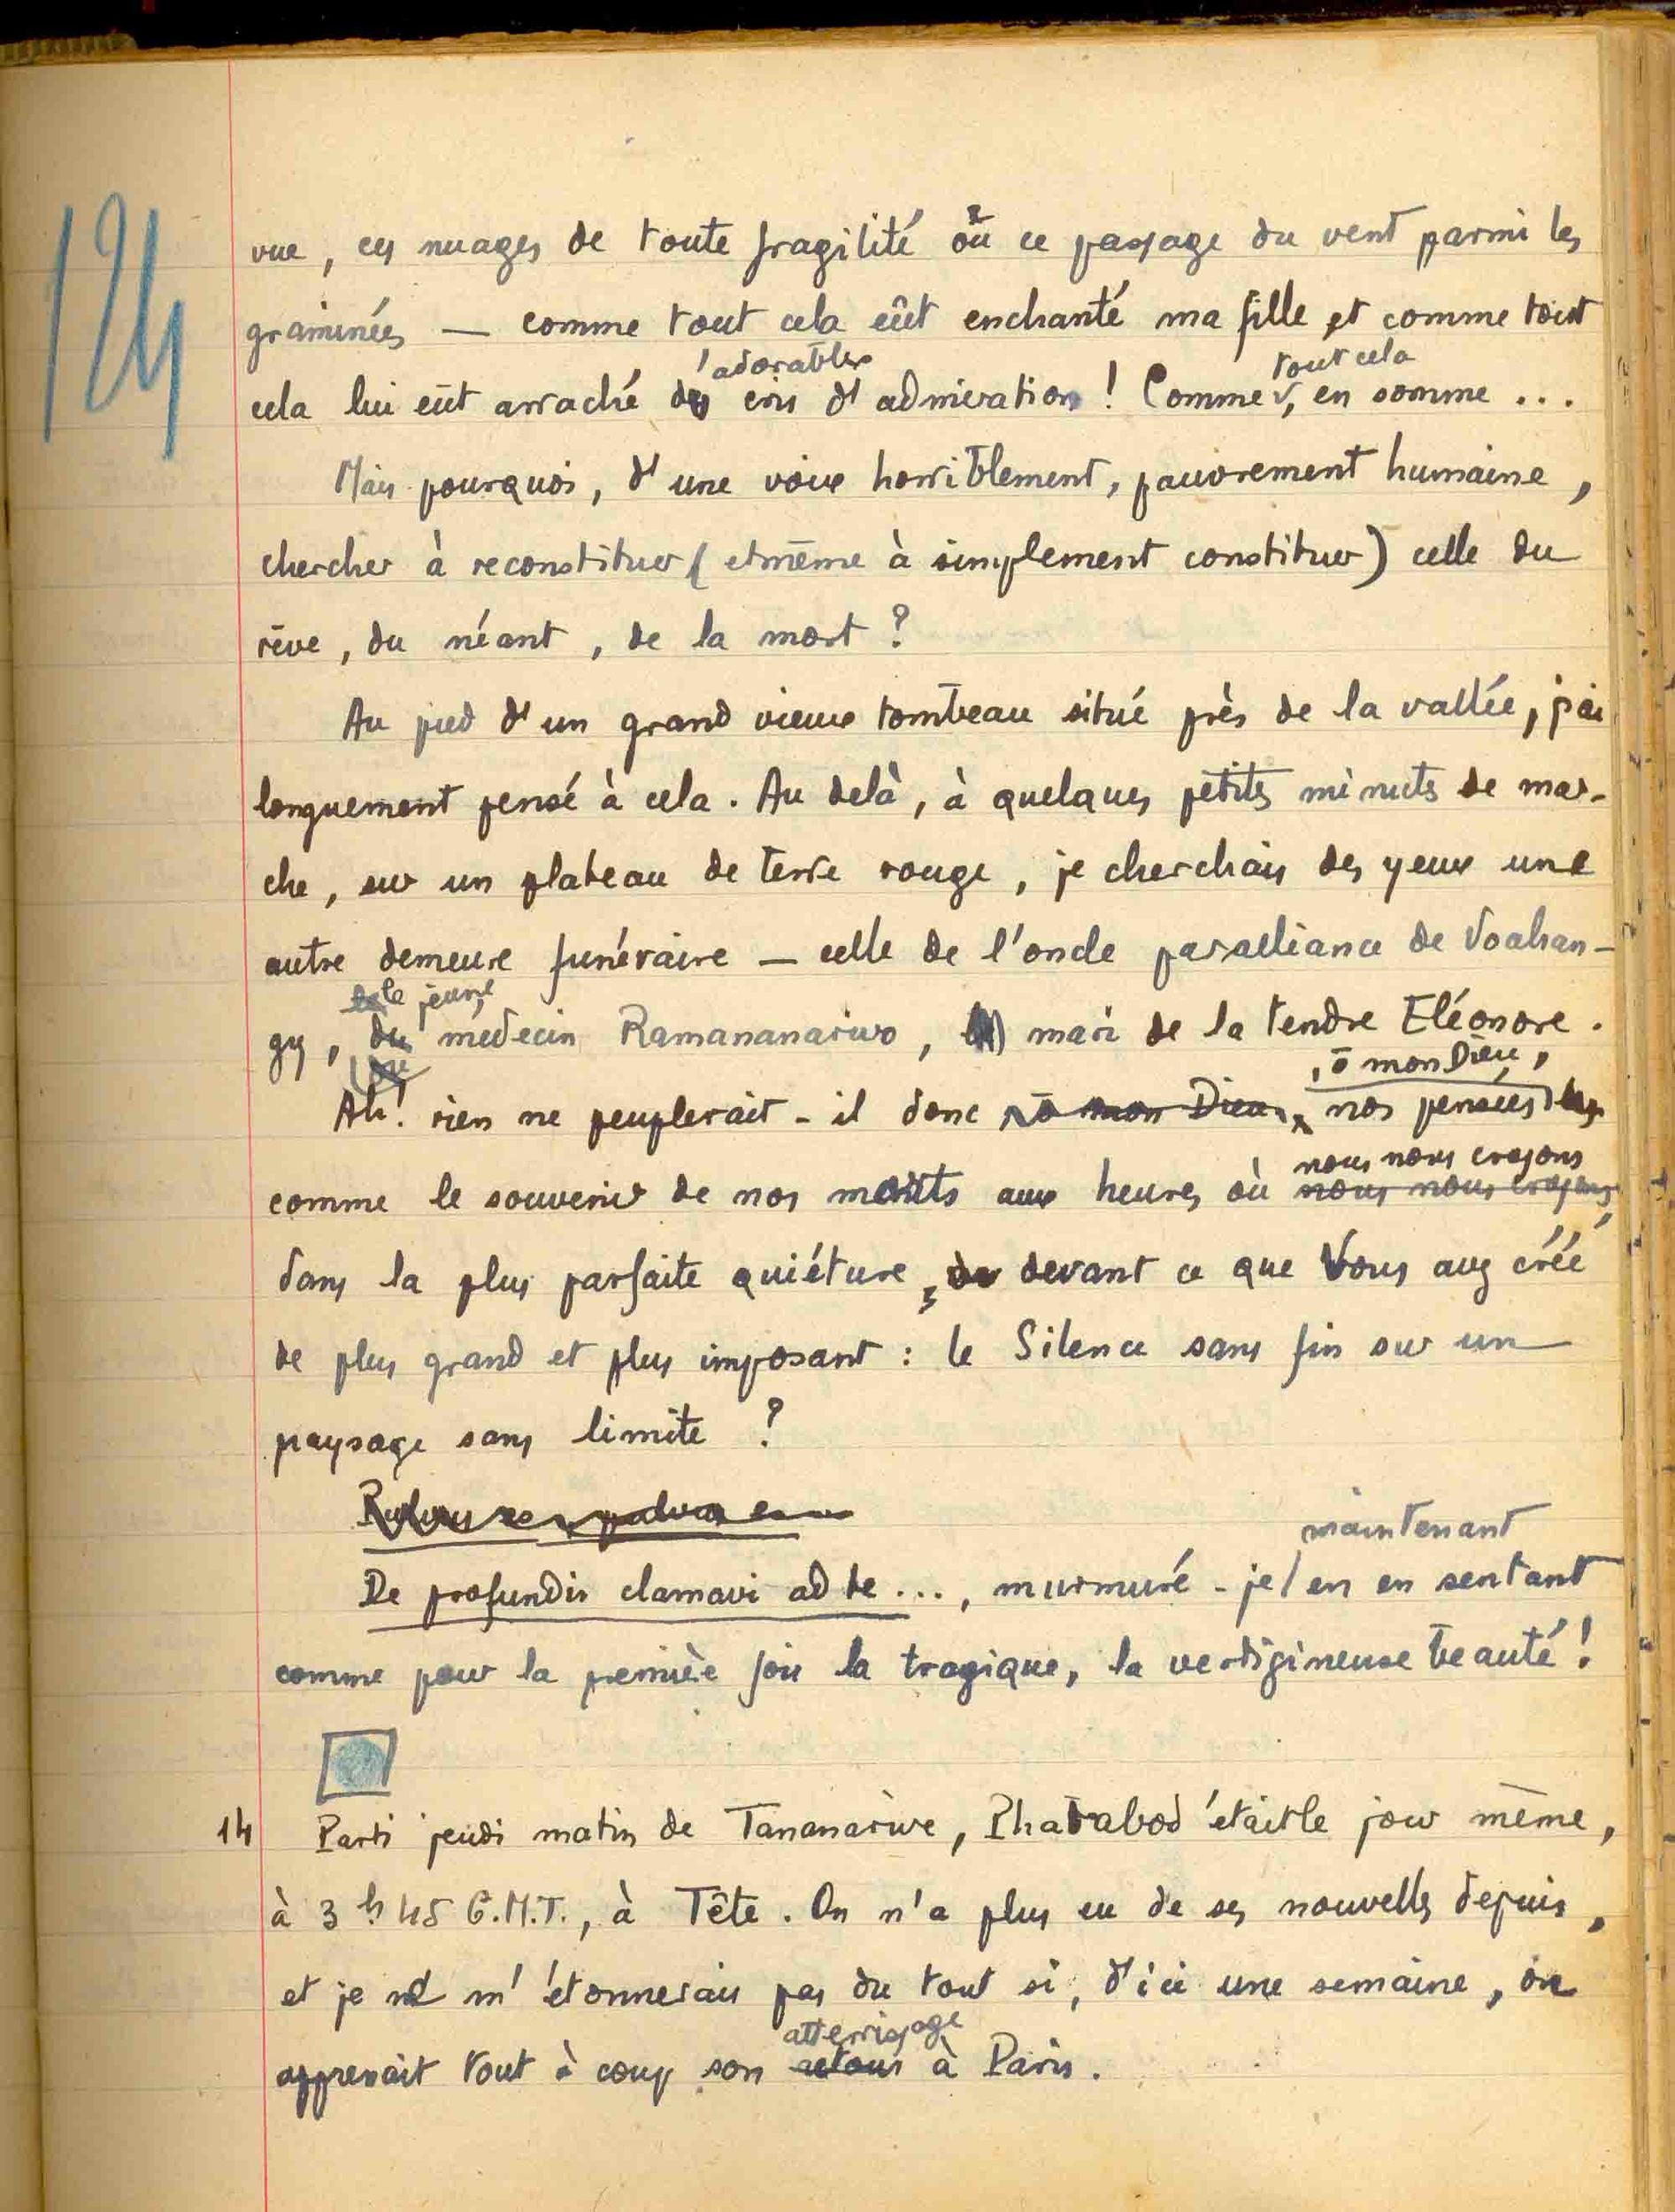 124
vue, ces nuages de toute fragilité où ce passage du vent parmi les
graminées — comme tout cela eût enchanté ma fille et comme tout
adorables tout cela
cela lui eût arraché des cris d'admiration ! Comme, en somme ...
Mais pourquoi, d'une voix horriblement, pauvrement humaine,
chercher à reconstituer (et même à simplement constituer) celle du
rêve, du néant, de la mort ?
Au pied d'un grand vieux tombeau situé près de la vallée, j'ai
longuement pensé à cela. Au delà, à quelques petites minutes de mar-
che, sur un plateau de terre rouge, je cherchais des yeux une
autre demeure funéraire — celle de l'oncle par alliance de Voahan-
le jeune
gy, du médecin Ramananarivo, mari de la tendre Eléonore.
, ô mon Dieu,
Ah! rien ne peuplerait-il donc ô mon Dieu, nos pensées
nous nous croyons
comme le souvenir de nos morts aux heures où nous nous croyons
dans la plus parfaite quiéture, devant ce que Vous avez créé
de plus grand et plus imposant : le Silence sans fin sur un
paysage sans limite ?
maintenant
De profundis clamavi ad te ..., murmuré-je en en sentant
comme pour la première fois la tragique, la vertigineuse beauté !
14 Parti jeudi matin de Tananarive, Pharabod était le jour même,
à 3 h 45 G.M.T., à Tête. On n'a plus eu de ses nouvelles depuis,
et je ne m'étonnerais pas du tout si, d'ici une semaine, on
atterrissage
apprenait tout à coup son retour à Paris.